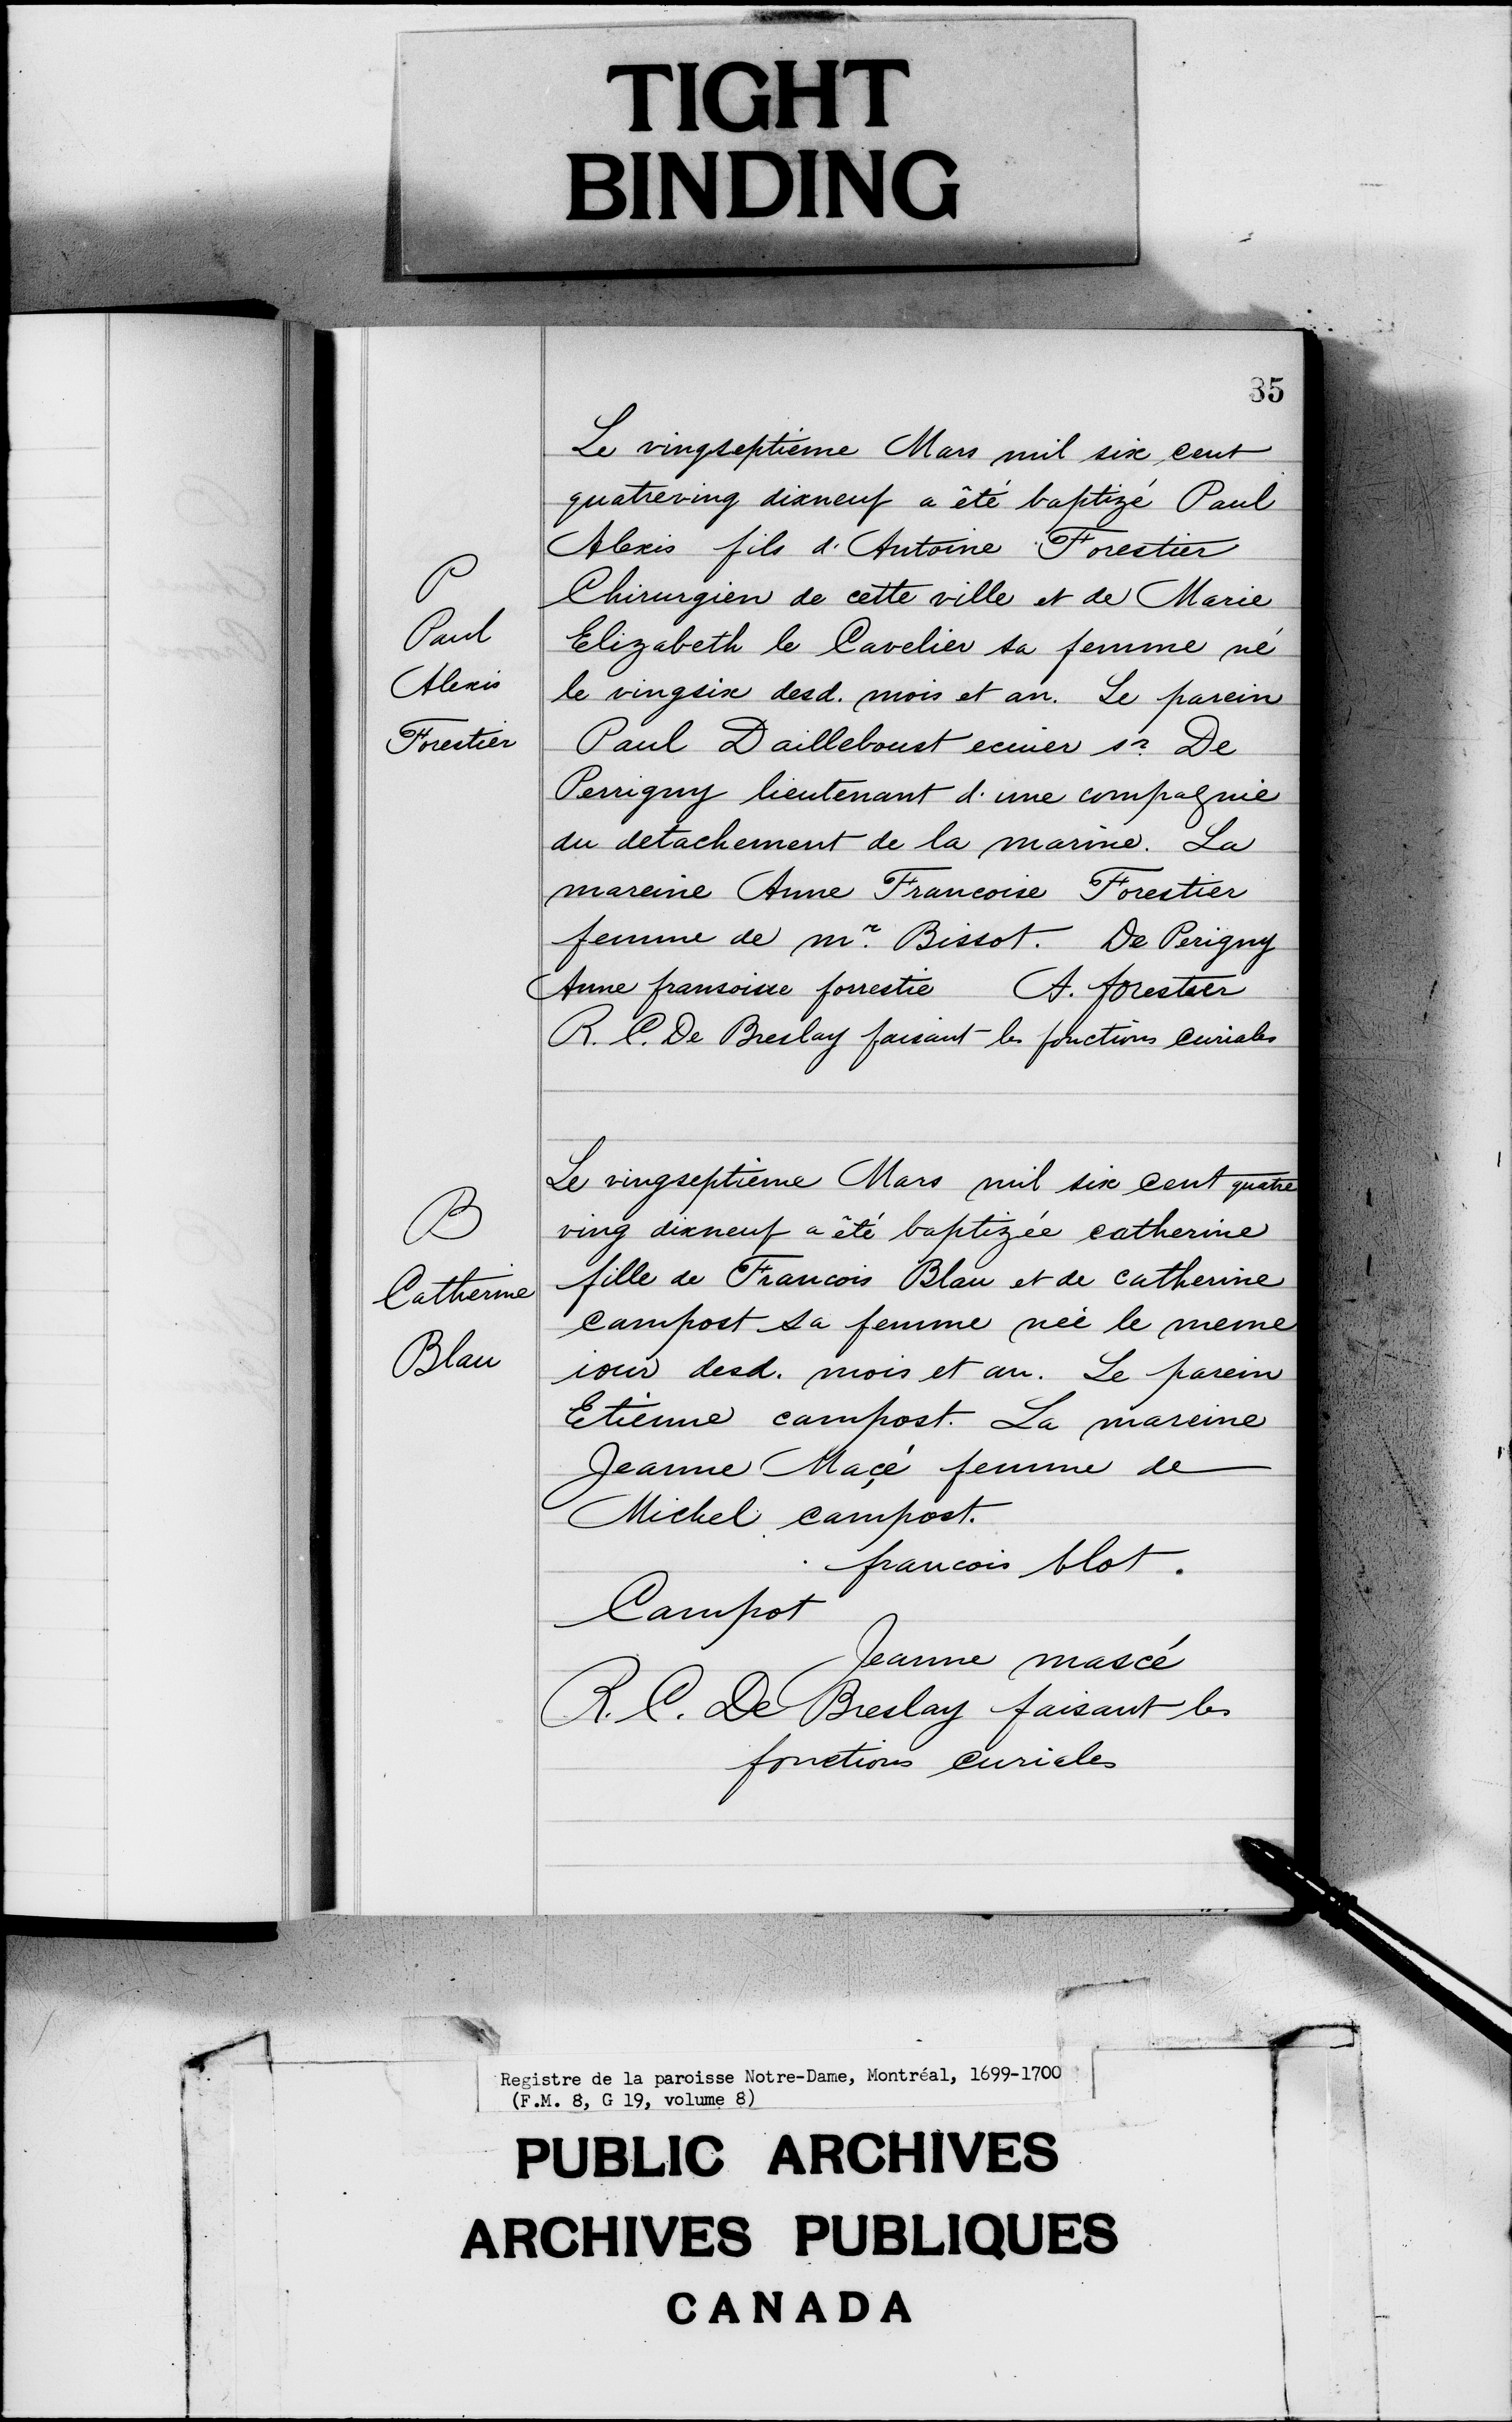 TIGHT
BINDING
35
Le vingseptieme Mars mil six cent
quatreving dixneuf a été baptizé Paul
Alexis fils d'Antoine Forestier
Chirurgien de cette ville et de Marie
Elizabeth le Cavelier sa femme né
le vingsix desd. mois et an. Le parein
Paul Dailleboust ecuier sr. De
Perrigny lieutenant d'une compagnie
du detachement de la marine. La
mareine Anne Francoise Forestier
femme de mr. Bissot. De Perigny
Anne fransoisse forrestie A. forestier
R. C. De Breslay faisant les fonctions curiales
P
Paul
Alexis
Forestier
Le vingseptieme Mars mil six cent quatre
ving dixneuf a été baptizée catherine
fille de Francois Blau et de catherine
campost sa femme née le meme
iour desd. mois et an. Le parein
Etienne campost. La mareine
Jeanne Maçé femme de
Michel campost.
francois blot.
Campot
Jeanne mascé
R. C. De Breslay faisant les
fonctions curiales
B
Catherine
Blau
Registre de la paroisse Notre-Dame, Montréal, 1699-1700
(F.M. 8, G 19, volume 8)
PUBLIC ARCHIVES
ARCHIVES PUBLIQUES
CANADA